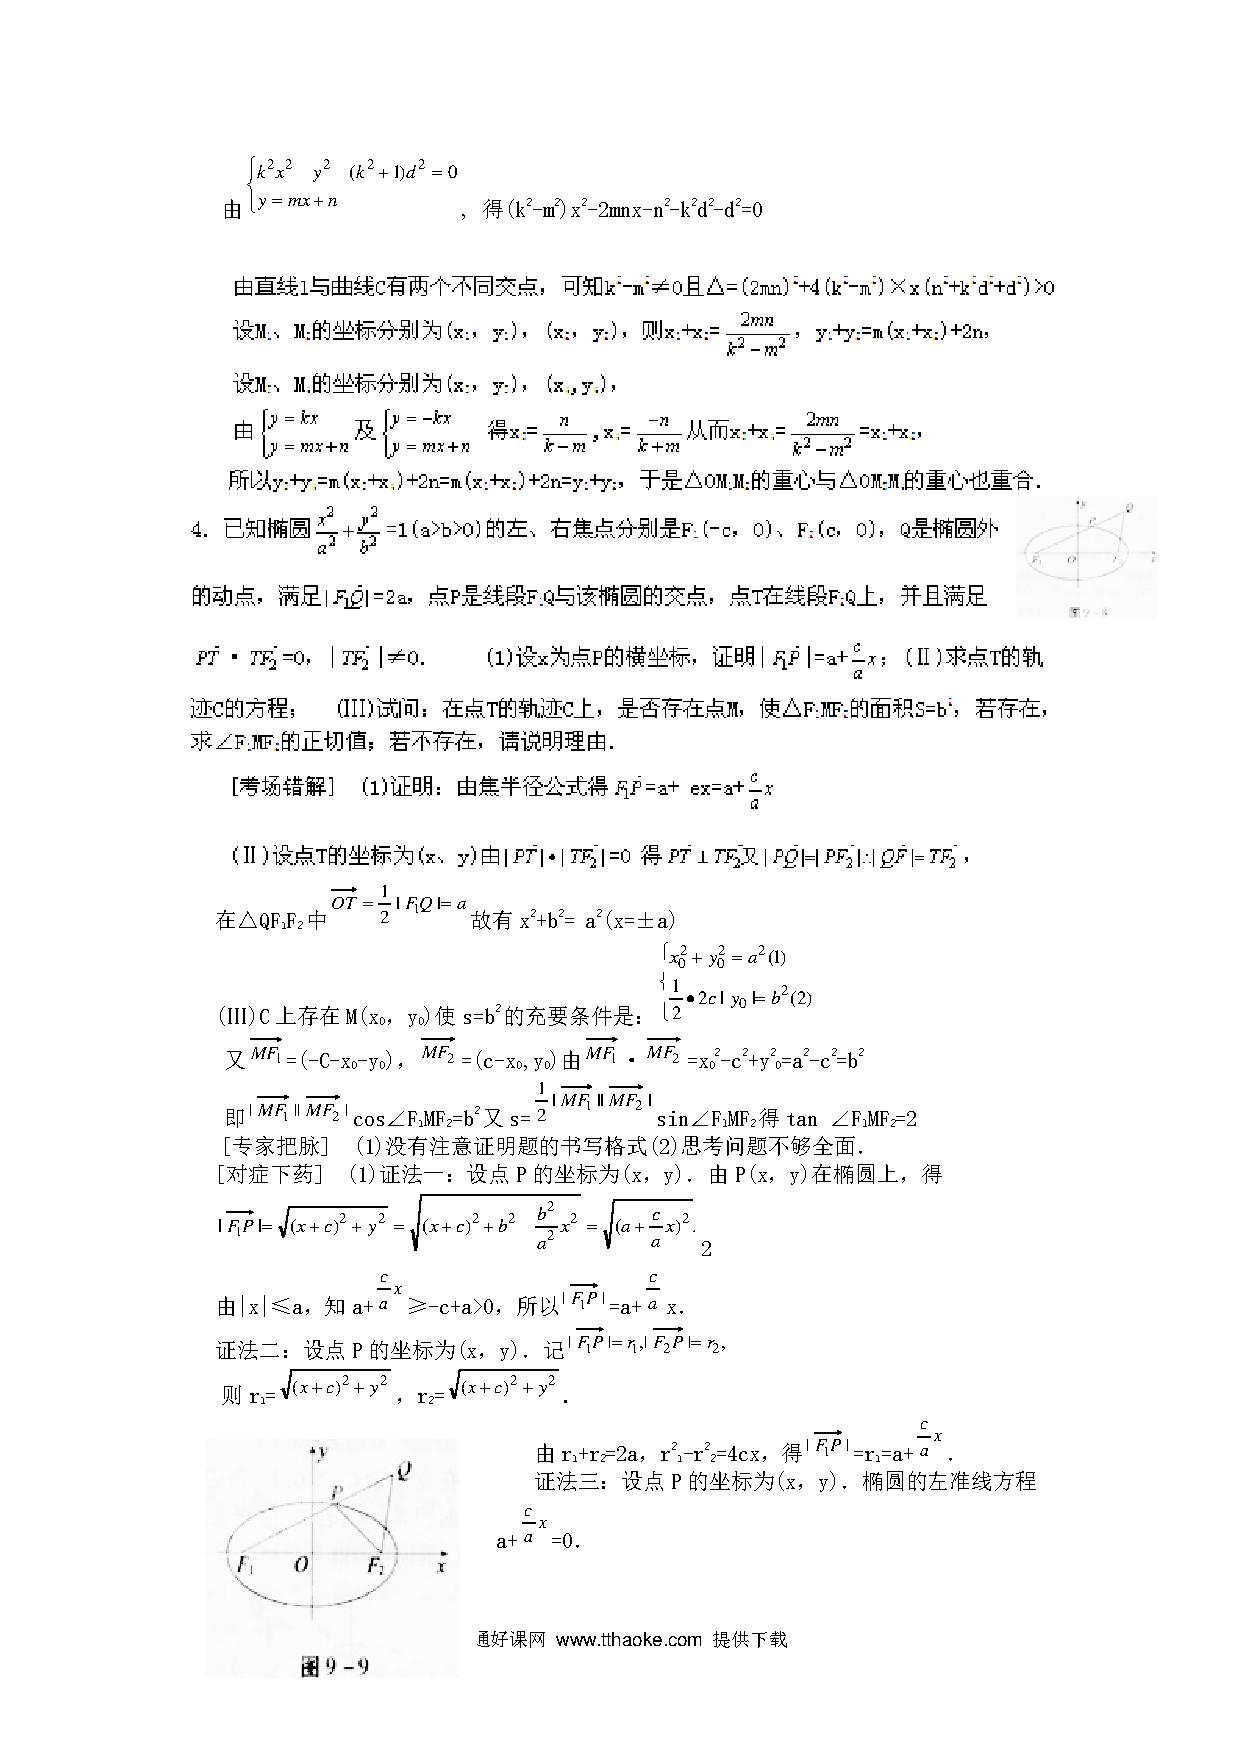 由{k²x² y² (k²+1)d²=0 y=mx+n , 得(k²-m²)x²-2mnx-n²-k²d²-d²=0
由直线l与曲线C有两个不同交点，可知k²-m²≠0且△=(2mn)²+4(k²-m²)×x(n²+k²d²+d²)>0
设M₁、M₂的坐标分别为(x₁，y₁)，(x₂，y₂)，则x₁+x₂=2mn/(k²-m²)，y₁+y₂=m(x₁+x₂)+2n，
设M₃、M₄的坐标分别为(x₃，y₃)，(x₄,y₄)，
由{y=kx y=mx+n 及{y=-kx y=mx+n 得x₃=n/(k-m),x₄=-n/(k+m)从而x₃+x₄=2mn/(k²-m²)=x₁+x₂，
所以y₃+y₄=m(x₃+x₄)+2n=m(x₁+x₂)+2n=y₁+y₂，于是△OM₁M₂的重心与△OM₃M₄的重心也重合．
4．已知椭圆x²/a²+y²/b²=1(a>b>0)的左、右焦点分别是F₁(-c，0)、F₂(c，0)，Q是椭圆外
的动点，满足|F₁Q|=2a，点P是线段F₁Q与该椭圆的交点，点T在线段F₂Q上，并且满足
PT·TF₂=0，|TF₂|≠0． (1)设x为点P的横坐标，证明|F₁P|=a+c/a x；(Ⅱ)求点T的轨
迹C的方程； (Ⅲ)试问：在点T的轨迹C上，是否存在点M，使△F₁MF₂的面积S=b²，若存在，
求∠F₁MF₂的正切值；若不存在，请说明理由．
[考场错解] (1)证明：由焦半径公式得F₁P=a+ ex=a+c/a x
(Ⅱ)设点T的坐标为(x、y)由|PT|•|TF₂|=0 得PT⊥TF₂又|PQ|=|PF₂|∴|QF|=TF₂，
在△QF₁F₂中OT=1/2|F₁Q|=a故有x²+b²= a²(x=±a)
(Ⅲ)C上存在M(x₀，y₀)使s=b²的充要条件是：{x₀²+y₀²=a²(1) 1/2•2c|y₀|=b²(2)
又MF₁=(-C-x₀-y₀)，MF₂=(c-x₀,y₀)由MF₁·MF₂=x₀²-c²+y²₀=a²-c²=b²
即|MF₁||MF₂|cos∠F₁MF₂=b²又s=1/2|MF₁||MF₂|sin∠F₁MF₂得tan ∠F₁MF₂=2
[专家把脉] (1)没有注意证明题的书写格式(2)思考问题不够全面．
[对症下药] (1)证法一：设点P的坐标为(x，y)．由P(x，y)在椭圆上，得
|F₁P|=√((x+c)²+y²)=√((x+c)²+b² b²/a² x²)=√((a+c/a x)². 2
由|x|≤a，知a+c/a x≥-c+a>0，所以|F₁P|=a+c/a x．
证法二：设点P的坐标为(x，y)．记|F₁P|=r₁,|F₂P|=r₂,
则r₁=√((x+c)²+y²)，r₂=√((x+c)²+y²)．
由r₁+r₂=2a，r²₁-r²₂=4cx，得|F₁P|=r₁=a+c/a x．
证法三：设点P的坐标为(x，y)．椭圆的左准线方程
a+c/a x=0．
y
Q
P
F₁ O F₂ x
图9-9
通好课网 www.tthaoke.com 提供下载